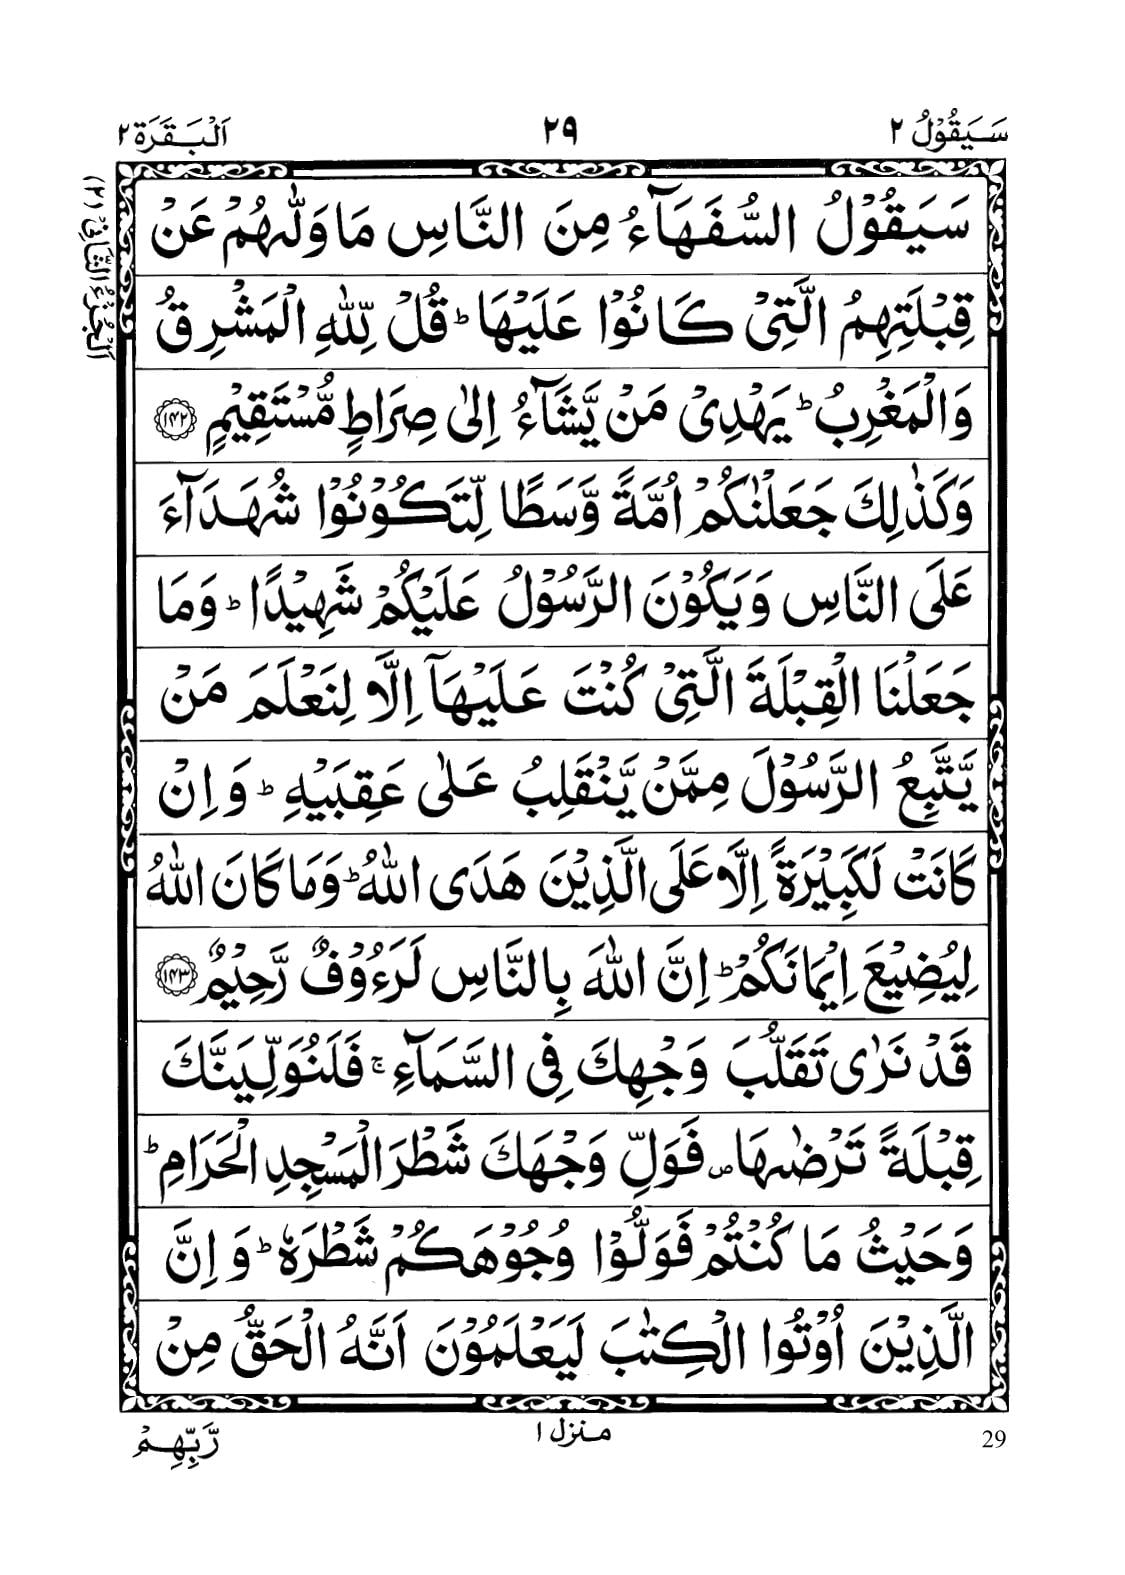 سَيَقُوْلُ ٢
٢٩
اَلْبَقَرَة ٢
اَلْجُزْءُ الثَّانِیْ (٢)
سَيَقُوْلُ السُّفَهَآءُ مِنَ النَّاسِ مَا وَلّٰىهُمْ عَنْ
قِبْلَتِهِمُ الَّتِیْ كَانُوْا عَلَيْهَا ؕ قُلْ لِّلّٰهِ الْمَشْرِقُ
وَالْمَغْرِبُ ؕ يَهْدِیْ مَنْ يَّشَآءُ اِلٰی صِرَاطٍ مُّسْتَقِيْمٍ ﴿۱۴۲﴾
وَكَذٰلِكَ جَعَلْنٰكُمْ اُمَّةً وَّسَطًا لِّتَكُوْنُوْا شُهَدَآءَ
عَلَی النَّاسِ وَيَكُوْنَ الرَّسُوْلُ عَلَيْكُمْ شَهِيْدًا ؕ وَمَا
جَعَلْنَا الْقِبْلَةَ الَّتِیْ كُنْتَ عَلَيْهَآ اِلَّا لِنَعْلَمَ مَنْ
يَّتَّبِعُ الرَّسُوْلَ مِمَّنْ يَّنْقَلِبُ عَلٰی عَقِبَيْهِ ؕ وَاِنْ
كَانَتْ لَكَبِيْرَةً اِلَّا عَلَی الَّذِيْنَ هَدَی اللّٰهُ ؕ وَمَا كَانَ اللّٰهُ
لِيُضِيْعَ اِيْمَانَكُمْ ؕ اِنَّ اللّٰهَ بِالنَّاسِ لَرَءُوْفٌ رَّحِيْمٌ ﴿۱۴۳﴾
قَدْ نَرٰی تَقَلُّبَ وَجْهِكَ فِی السَّمَآءِ ۚ فَلَنُوَلِّيَنَّكَ
قِبْلَةً تَرْضٰىهَا ۪ فَوَلِّ وَجْهَكَ شَطْرَ الْمَسْجِدِ الْحَرَامِ ؕ
وَحَيْثُ مَا كُنْتُمْ فَوَلُّوْا وُجُوْهَكُمْ شَطْرَهٗ ؕ وَاِنَّ
الَّذِيْنَ اُوْتُوا الْكِتٰبَ لَيَعْلَمُوْنَ اَنَّهُ الْحَقُّ مِنْ
رَّبِّهِمْ
منزل ۱
29